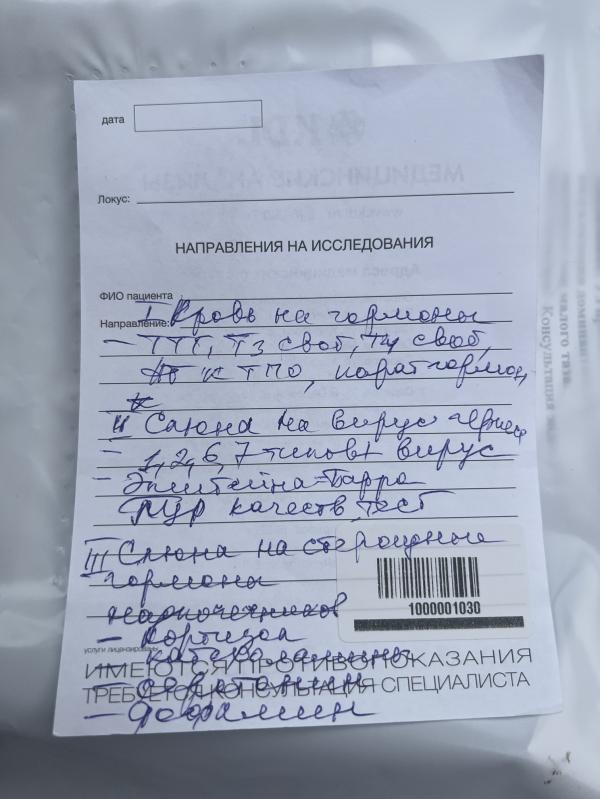 дата
Локус:
НАПРАВЛЕНИЯ НА ИССЛЕДОВАНИЯ
ФИО пациента
I Кровь на гормоны
Направление:
– ТТГ, Т3 своб, Т4 своб,
АТ к ТПО, паратгормон,
II Слюна на вирус герпеса
– 1, 2, 6, 7 типов + вирус
– Эпштейна-Барра
ПЦР качеств, тест
III Слюна на стероидные
гормоны
надпочечников
1000001030
– Кортизол
услуги лицензированы
– катехоламины
ИМЕЮТСЯ ПРОТИВОПОКАЗАНИЯ
– серотонин
ТРЕБУЕТСЯ КОНСУЛЬТАЦИЯ СПЕЦИАЛИСТА
– дофамин
МЕДИЦИНСКИЕ АНАЛИЗЫ